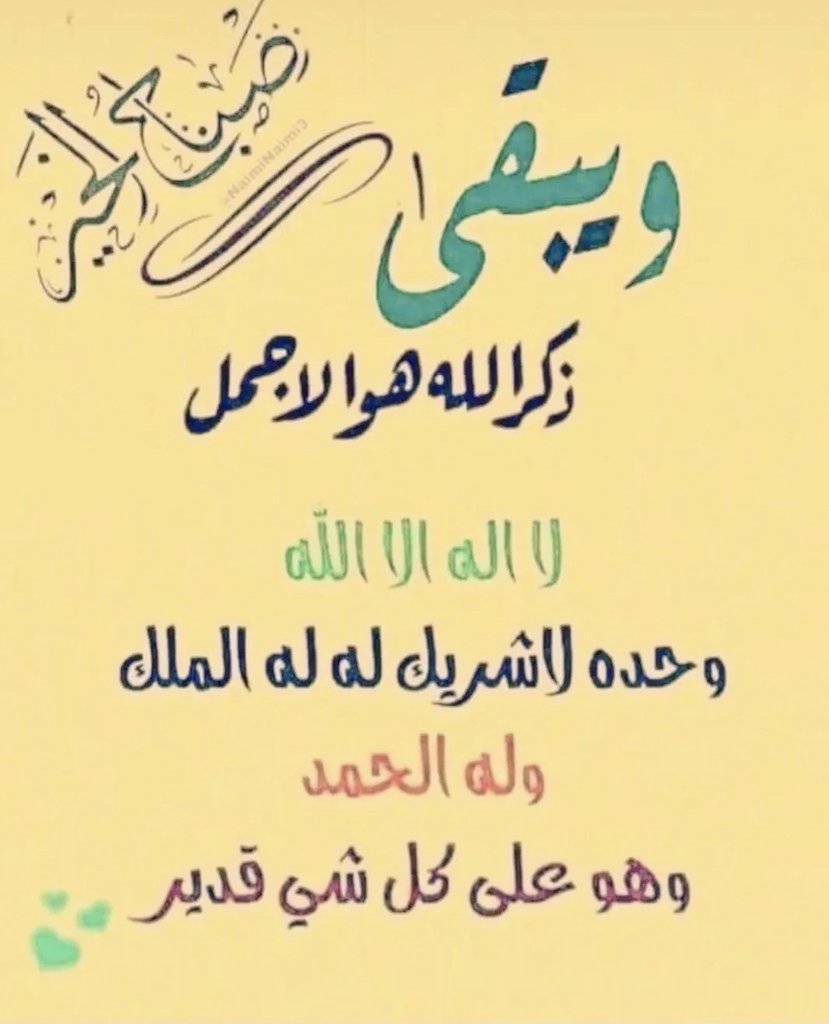 صباح الخير
@NaimiNaimi3
ويبقى
ذكر الله هو الاجمل
لا اله الا الله
وحده لاشريك له له الملك
وله الحمد
وهو على كل شي قدير